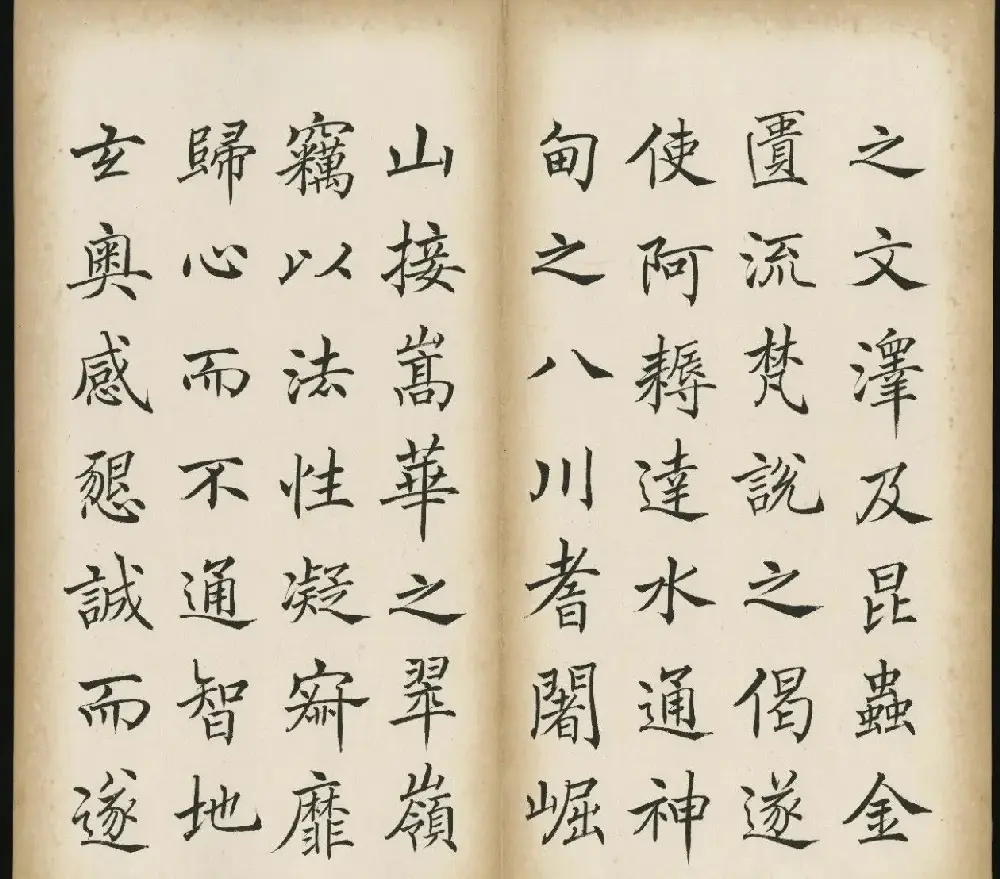 之文澤及昆蟲金
匱流梵說之偈遂
使阿耨達水通神
甸之八川耆闍崛
山接嵩華之翠嶺
竊以法性凝寂靡
歸心而不通智地
玄奧感懇誠而遂